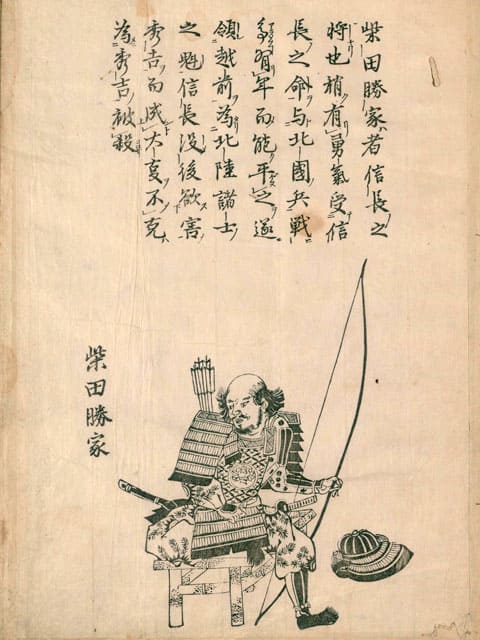 柴田勝家者信長之
将也稍有勇氣受信
長之命与北國兵戰
有年而能平之遂
領越前為北陸諸士
之魁信長没後欲害
秀吉而成大叓不克
為秀吉被殺
柴田勝家